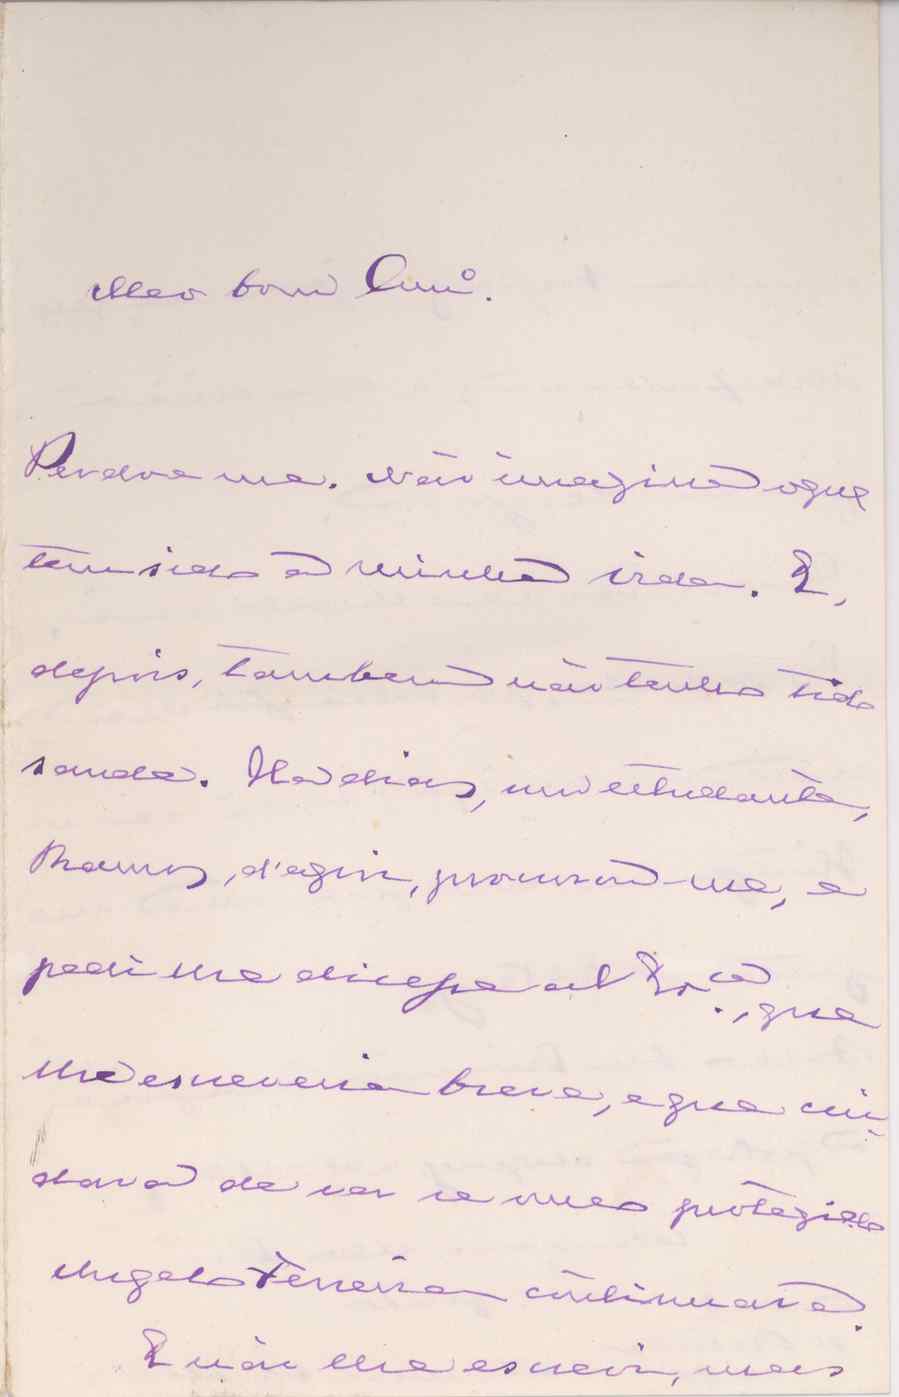 Meo bom Am.º
Perdoe me. Não imagina o que
tem sido a minha vida. E,
depois, tambem não tenho tido
saude. Ha dias, um estudante,
Ramos, d'aqui, procurou-me, e
pedi lhe dicesse a V. Ex.cia, que
lhe escreveria breve, e que cui-
dava de ver se meo protegido
Angelo Ferreira continuava.
E não lhe escrevi, mas